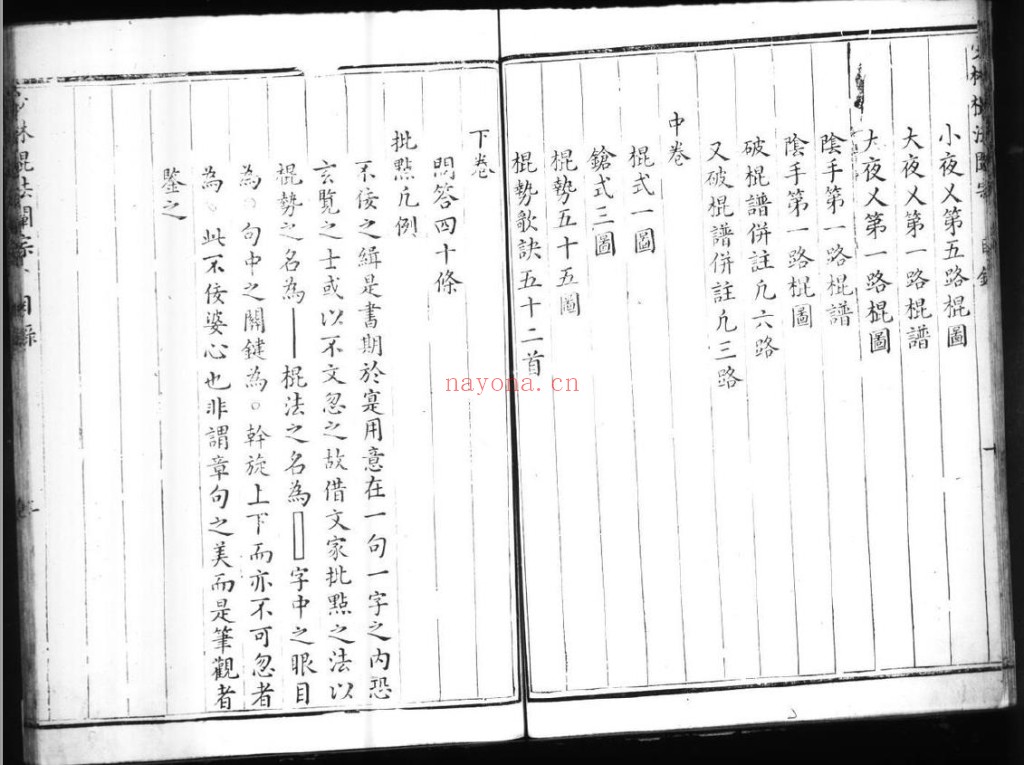 小夜乂第五路棍圖
大夜乂第一路棍譜
大夜乂第一路棍圖
陰手第一路棍譜
陰手第一路棍圖
破棍譜併註凢六路
又破棍譜併註凢三路
中卷
棍式一圖
鎗式三圖
棍勢五十五圖
棍勢歌訣五十二首
下卷
問答四十條
批點凢例
不佞之緝是書期於寔用意在一句一字之內恐
玄覽之士或以不文忽之故借文家批點之法以
棍勢之名為｜棍法之名為▯字中之眼目
為○句中之關鍵為○幹旋上下而亦不可忽者
為、此不佞婆心也非謂章句之美而是筆觀者
鍳之
林棍法闡宗 目錄
nayona.cn